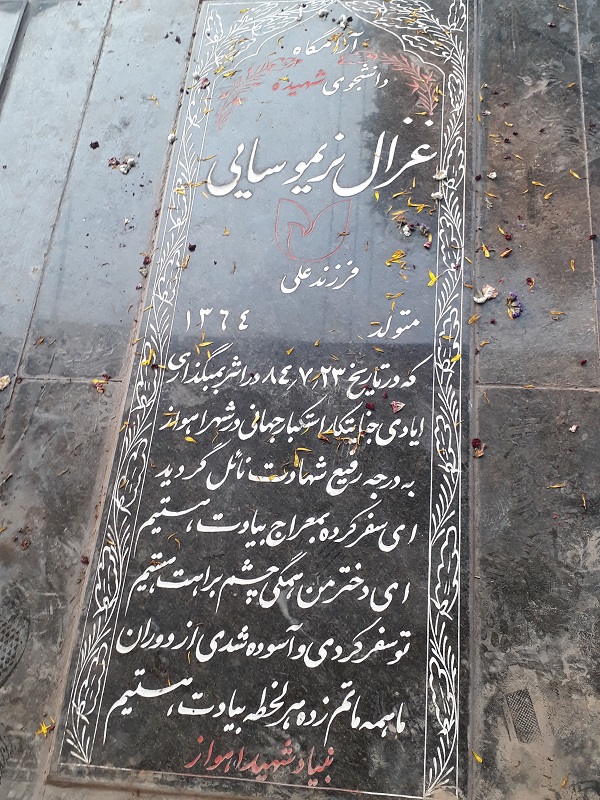 آرامگاه
دانشجوی شهیده
غزال نریموسایی
فرزند علی
متولد ۱۳۶۴
که در تاریخ ۸۴٫۷٫۲۳ در اثر بمبگذاری
ایادی جنایتکار استکبار جهانی در شهر اهواز
به درجه رفیع شهادت نائل گردید
ای سفر کرده بمعراج بیادت هستیم
ای دختر من همگی چشم براهت هستیم
تو سفر کردی و آسوده شدی از دوران
ما همه ماتم زده هر لحظه بیادت هستیم
بنیاد شهید اهواز